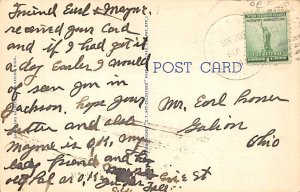 Friend Earl & Mayme
received your Card
and if I had got it
a day Earlier I would
of seen you in
Jackson. hope your
better and also
Mayme is O.K. my
lady friend and her
St
POST CARD
Mr. Earl
Galion
Ohio